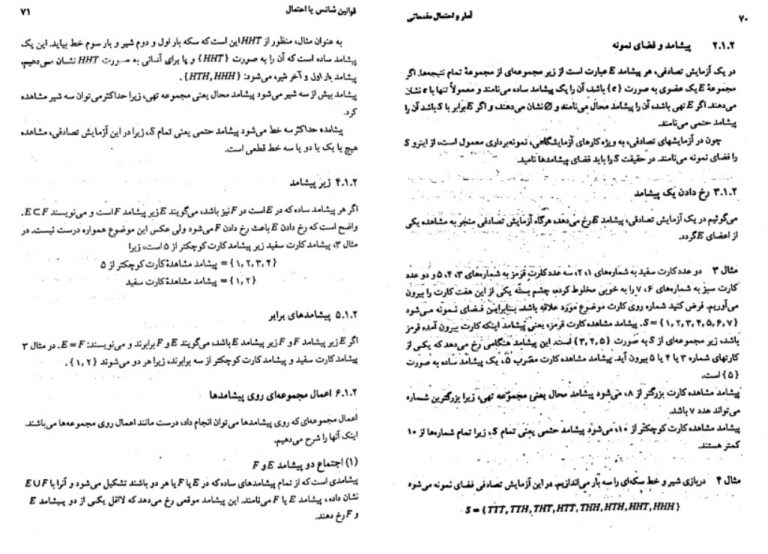 ۷۰ آمار و احتمال مقدماتی
۲.۱.۲ پیشامد و فضای نمونه
در یک آزمایش تصادفی، هر پیشامد E عبارت است از زیر مجموعه‌ای از مجموعهٔ تمام نتیجه‌ها. اگر
مجموعهٔ E یک عضوی به صورت {e} باشد، آن را یک پیشامد ساده می‌نامند و معمولاً تنها با e نشان
می‌دهند. اگر E تهی باشد، آن را پیشامد محال می‌نامند و Ø نشان می‌دهند، و اگر E برابر با S باشد آن را
پیشامد حتمی می‌نامند.
چون در آزمایشهای تصادفی، به ویژه کارهای آزمایشگاهی، نمونه‌برداری معمول است، از اینرو S
را فضای نمونه می‌نامند. در حقیقت S را باید فضای پیشامدها نامید.
۳.۱.۲ رخ دادن یک پیشامد
می‌گوئیم در یک آزمایش تصادفی، پیشامد E رخ می‌دهد، هرگاه آزمایش تصادفی منجر به مشاهده یکی
از اعضای E گردد.
مثال ۳ دو عدد کارت سفید به شماره‌های ۱، ۲، سه عدد کارت قرمز به شماره‌های ۳، ۴، ۵ و دو عدد
کارت سبز به شماره‌های ۶، ۷ را به خوبی مخلوط کرده، چشم بسته یکی از این هفت کارت را بیرون
می‌آوریم. فرض کنید شماره روی کارت موضوع مورد علاقه باشد. بنابراین فضای نمونه می‌شود
S = {۱, ۲, ۳, ۴, ۵, ۶, ۷}. پیشامد مشاهده کارت قرمز، یعنی پیشامد اینکه کارت بیرون آمده قرمز
باشد، زیر مجموعه‌ای از S به صورت {۳, ۴, ۵} است. این پیشامد هنگامی رخ می‌دهد که یکی از
کارتهای شماره ۳ یا ۴ یا ۵ بیرون آید. پیشامد مشاهده کارت مضرب ۵، یک پیشامد ساده به صورت
{۵} است.
پیشامد مشاهده کارت بزرگتر از ۸، می‌شود پیشامد محال یعنی مجموعه تهی، زیرا بزرگترین شماره
می‌تواند عدد ۷ باشد.
پیشامد مشاهده کارت کوچکتر از ۱۰، می‌شود پیشامد حتمی یعنی تمام S، زیرا تمام شماره‌ها از ۱۰
کمتر هستند.
مثال ۴ در بازی شیر و خط سکه‌ای را سه بار می‌اندازیم. در این آزمایش تصادفی فضای نمونه می‌شود
S = {TTT, TTH, THT, HTT, THH, HTH, HHT, HHH}
قوانین شانس یا احتمال ۷۱
به عنوان مثال، منظور از HHT این است که سکه بار اول و دوم شیر و بار سوم خط بیاید. این یک
پیشامد ساده است که آن را به صورت {HHT} و یا برای آسانی به صورت HHT نشان می‌دهیم.
پیشامد بار اول و آخر شیر، می‌شود: {HTH, HHH}.
پیشامد بیش از سه شیر می‌شود پیشامد محال یعنی مجموعه تهی، زیرا حداکثر می‌توان سه شیر مشاهده
کرد.
پیشامده حداکثر سه خط می‌شود پیشامد حتمی یعنی تمام S، زیرا در این آزمایش تصادفی، مشاهده
هیچ یا یک یا دو یا سه خط قطعی است.
۴.۱.۲ زیر پیشامد
اگر هر پیشامد ساده که در E است در F نیز باشد، می‌گویند E زیر پیشامد F است و می‌نویسند E⊂F.
واضح است که رخ دادن E باعث رخ دادن F می‌شود ولی عکس این موضوع همواره درست نیست. در
مثال ۳، پیشامد کارت سفید زیر پیشامد کارت کوچکتر از ۵ است، زیرا
{۱, ۲, ۳, ۴} = پیشامد مشاهدهٔ کارت کوچکتر از ۵
{۱, ۲} = پیشامد مشاهدهٔ کارت سفید
۵.۱.۲ پیشامدهای برابر
اگر E زیر پیشامد F و F زیر پیشامد E باشد، می‌گویند E و F برابرند و می‌نویسند: E = F. در مثال ۳
پیشامد کارت سفید و پیشامد کارت کوچکتر از سه برابرند، زیرا هر دو می‌شوند {۱, ۲}.
۶.۱.۲ اعمال مجموعه‌ای روی پیشامدها
اعمال مجموعه‌ای که روی پیشامدها می‌توان انجام داد، درست مانند اعمال روی مجموعه‌ها می‌باشند.
اینک آنها را شرح می‌دهیم.
(۱) اجتماع دو پیشامد E و F
پیشامدی است که از تمام پیشامدهای ساده که در E یا F یا هر دو باشند تشکیل می‌شود و آنرا با E∪F
نشان داده، پیشامد E یا F می‌نامند. این پیشامد موقعی رخ می‌دهد که لااقل یکی از دو پیشامد E
و F رخ دهند.